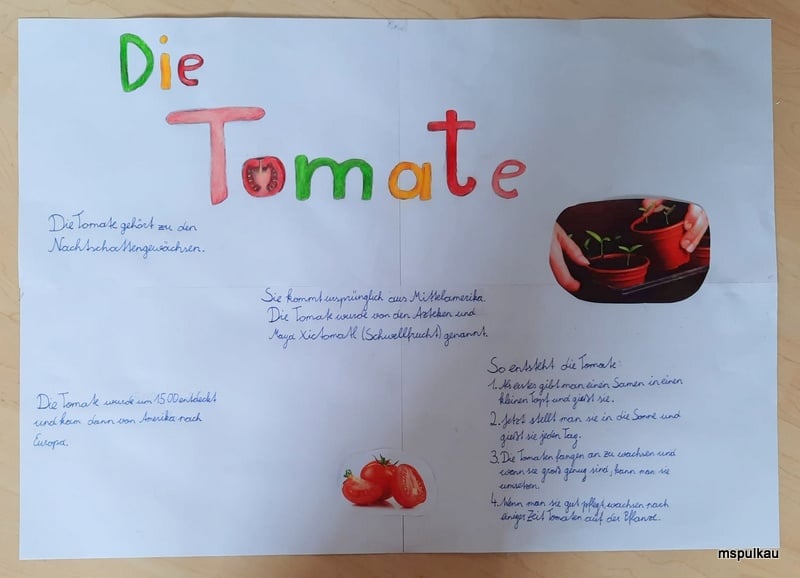 Die
Tomate
Die Tomate gehört zu den
Nachtschattengewächsen.
Sie kommt ursprünglich aus Mittelamerika.
Die Tomate wurde von den Azteken und
Maya Xictomatl (Schwellfrucht) genannt.
Die Tomate wurde um 1500 entdeckt
und kam dann von Amerika nach
Europa.
So entsteht die Tomate:
1. Als erstes gibt man einen Samen in einen
kleinen Topf und gießt sie.
2. Jetzt stellt man sie in die Sonne und
gießt sie jeden Tag.
3. Die Tomaten fangen an zu wachsen und
wenn sie groß genug sind, kann man sie
umsetzen.
4. Wenn man sie gut pflegt, wachsen nach
einiger Zeit Tomaten auf der Pflanze.
mspulkau